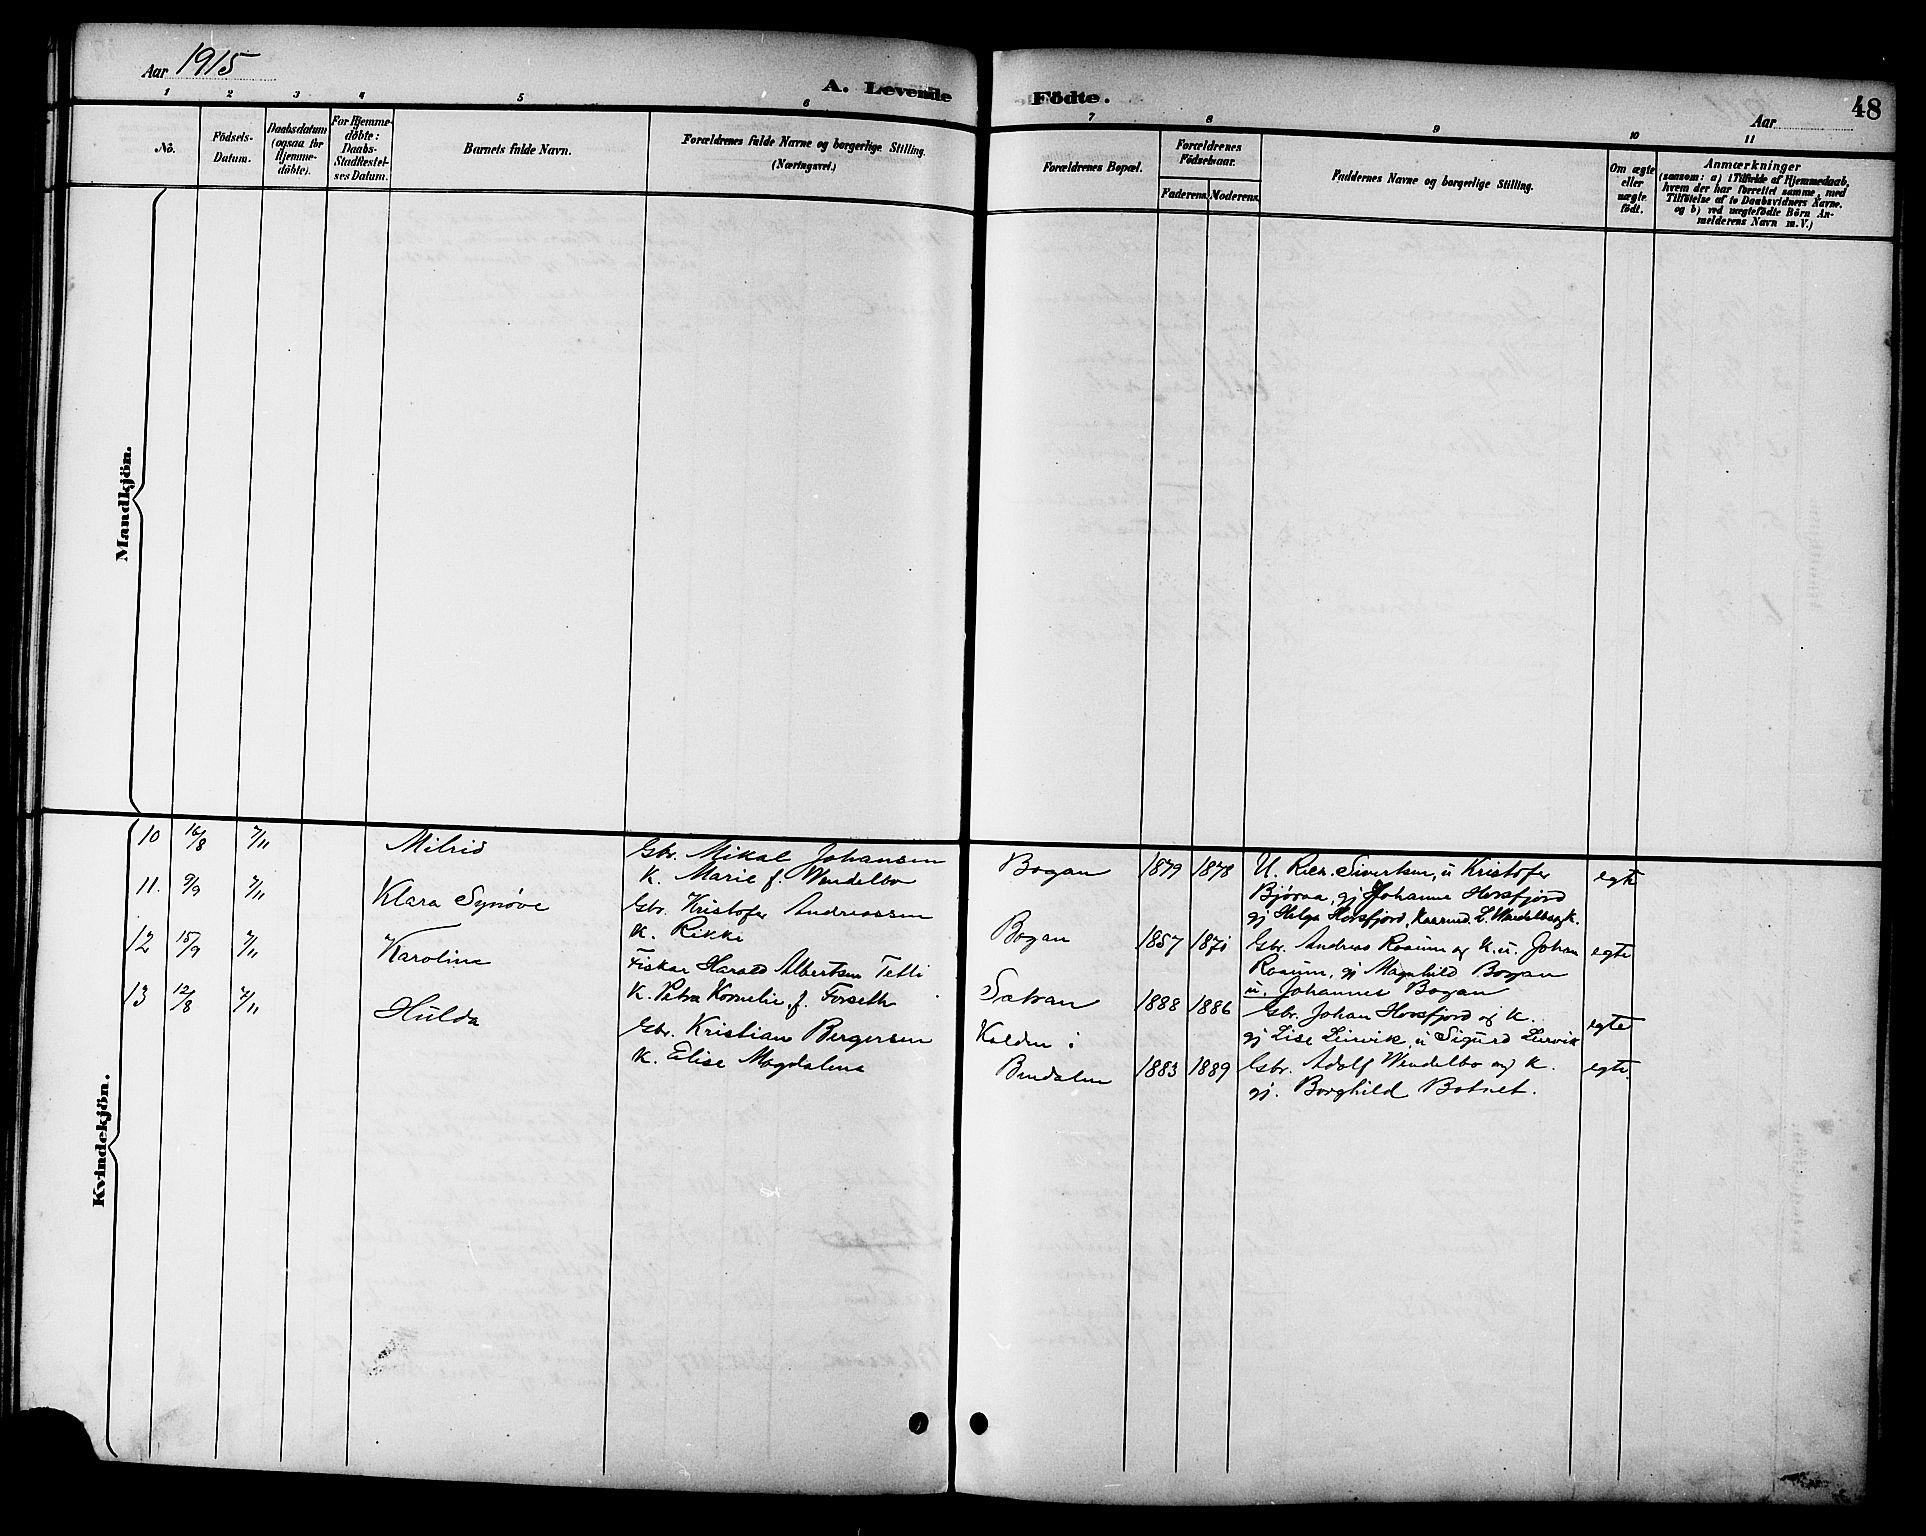 Aar 1915
A. Levende Födte.
Aar
48
1 2 3 4 5 6 7 8 9 10 11
No.
Födsels-
Datum.
Daabsdatum
(ogsaa for
Hjemme-
döbte).
For Hjemme-
döbte:
Daabs-
Stadfestel-
ses Datum.
Barnets fulde Navn.
Forældrenes fulde Navne og borgerlige Stilling.
(Næringsvei.)
Forældrenes Bopæl.
Forældrenes
Födselsaar.
Faderens. Moderens.
Faddernes Navne og borgerlige Stilling.
Om ægte
eller
uægte
födt.
Anmærkninger
(saasom: a) i Tilfælde af Hjemmedaab,
hvem der har forrettet samme, med
Tilföielse af to Daabsvidners Navne.
og b) ved uægtefödte Börn An-
melderens Navn m.V.)
Mandkjön.
Kvindekjön.
10 16/8 7/11 Milrid
Gbr. Mikal Johansen
K. Marie f. Wendelbo
Bogan 1879 1878
U. Rich. Sivertsen, u Kristofer
Bjøraa, gj Johanna Horsfjord
gj Helga Horsfjord, L. Wendelbo og K.
egte
11. 9/9 7/11 Klara Synøve
Gbr. Kristofer Andreassen
K. Rikke
Bogan 1857 1871
Gbr. Andreas Roaum og K. u. Johan
Roaum, gj Magnhild Bogan
u. Johannes Bogan
egte
12 15/9 7/11 Karoline
Fisker Harald Albertsen Tetli
K. Petra Kornelie, f. Forseth
Sætran 1888 1886
Gbr. Johan Horsfjord og K.
gj Lise Leirvik, u Sigurd Leirvik
egte
13 12/8 7/11 Hulda
Gbr. Kristian Bergersen
K. Elise Magdalena
Kolden i
Bindalen 1883 1889
Gbr. Adolf Wendelbo og K.
gj. Borghild Botnet.
egte.